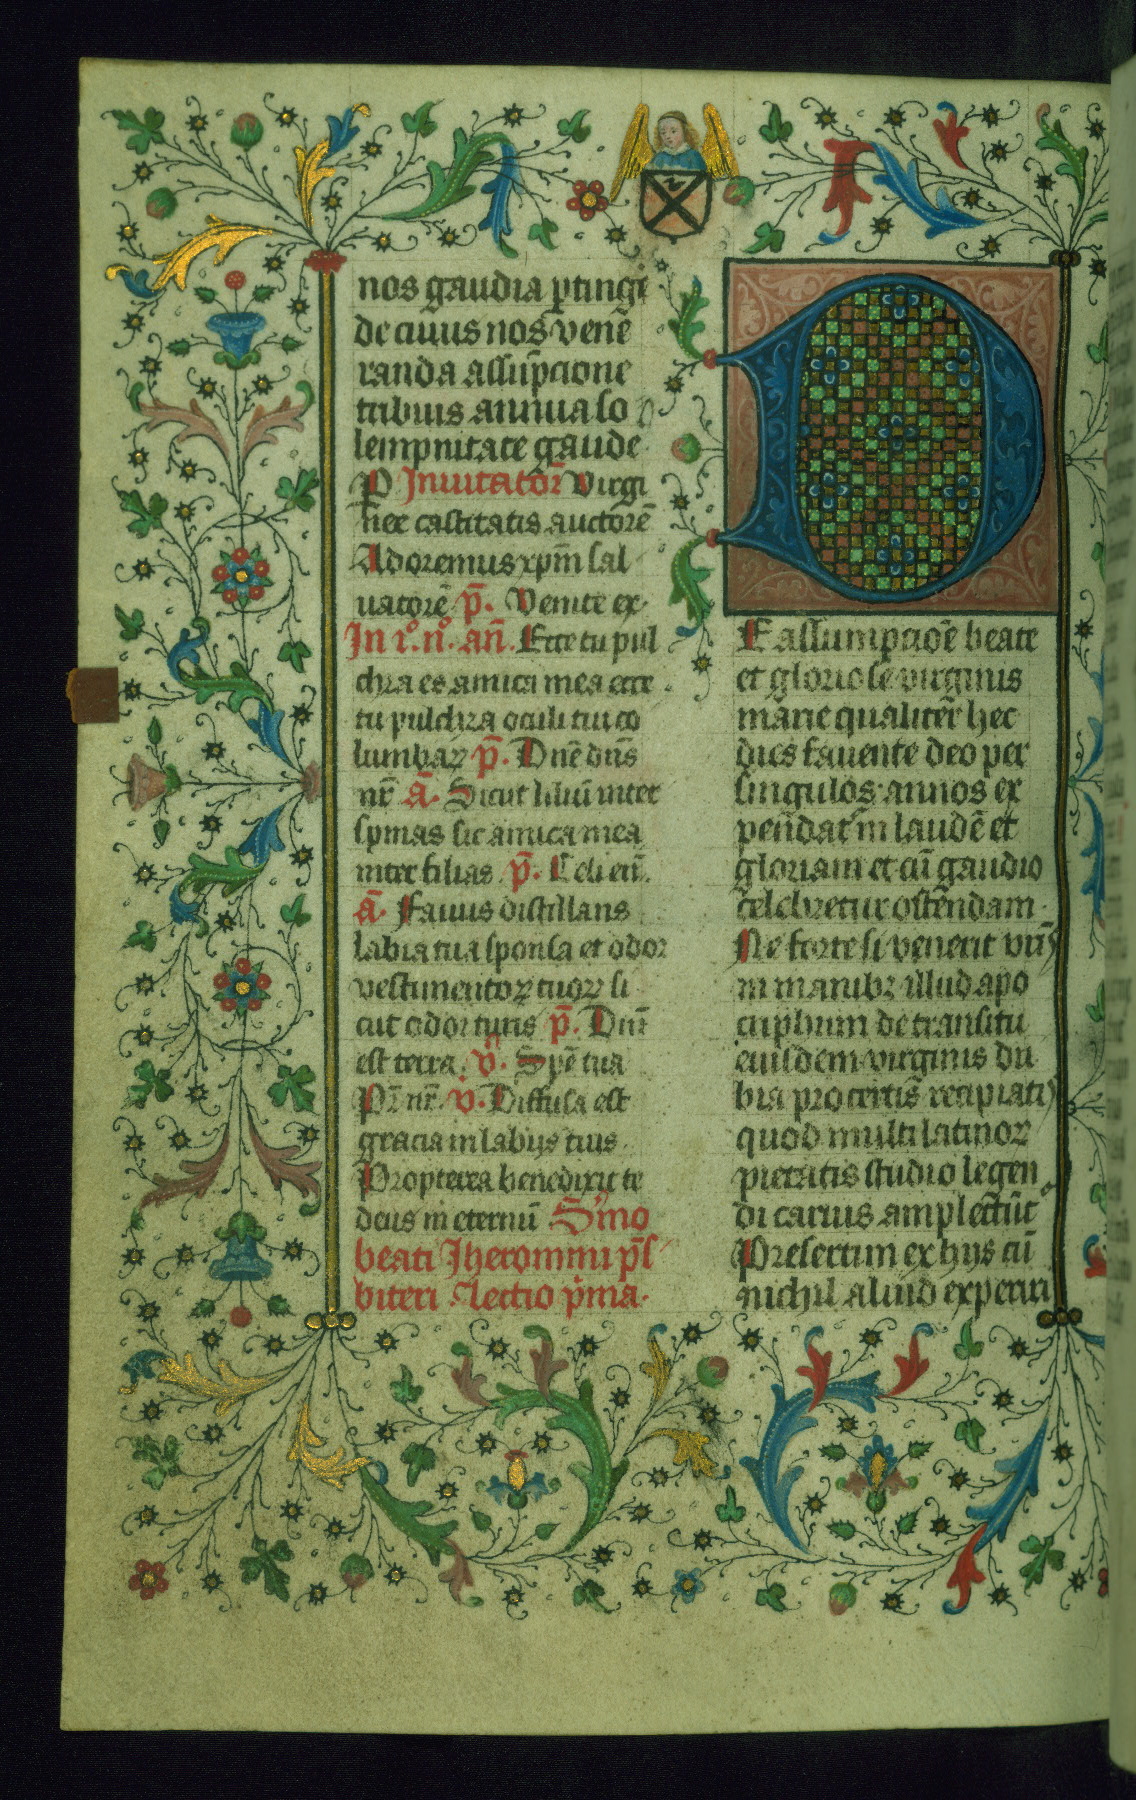 nos gaudia ꝑtingͥ
de cuius nos vene
randa assūpcione
tribuis annua so
lempnitate gaude
P Inuitatoꝝ̄ Virgi
nee castitatis auctorē
Adoremus xp̄m sal
uatorē p̄. Venite ex
In i°. n°. an̄. Ecce tu pul
chra es amica mea ecce
tu pulchra oculi tui co
lumbaꝝ p̄. Dn̄e dn̄s
nr̄ ā. Sicut liliū inter
spinas sic amica mea
inter filias p̄. Celi en̄.
ā. Fauus distillans
labia tua sponsa et odor
vestimentoꝝ tuoꝝ si
cut odor turis p̄. Dn̄i
est terra. v̄. Spē tua
Pr̄ nr̄. v̇. Diffusa est
gracia in labijs tuis.
Propterea benedixit te
deus in eternū Sͬmo
beati Iheronimi p̄s
biteri. Lectio pͥma.
D
E assumpcioē beate
et gloriose virginis
marie qualiter hec
dies fauente deo per
singulos annos ex
pendat̄ in laudē et
gloriam et cū gaudio
celebretur ostendam
Ne forte si venerit vrīs
in manibꝫ illud apo
criphum de transitu
eiusdem virginis du
bia pro certis recipiatis
quod multi latinoꝝ
pietatis studio legen
di carius amplectūt̄
Presertim ex hijs cū
nichil aliud experiri